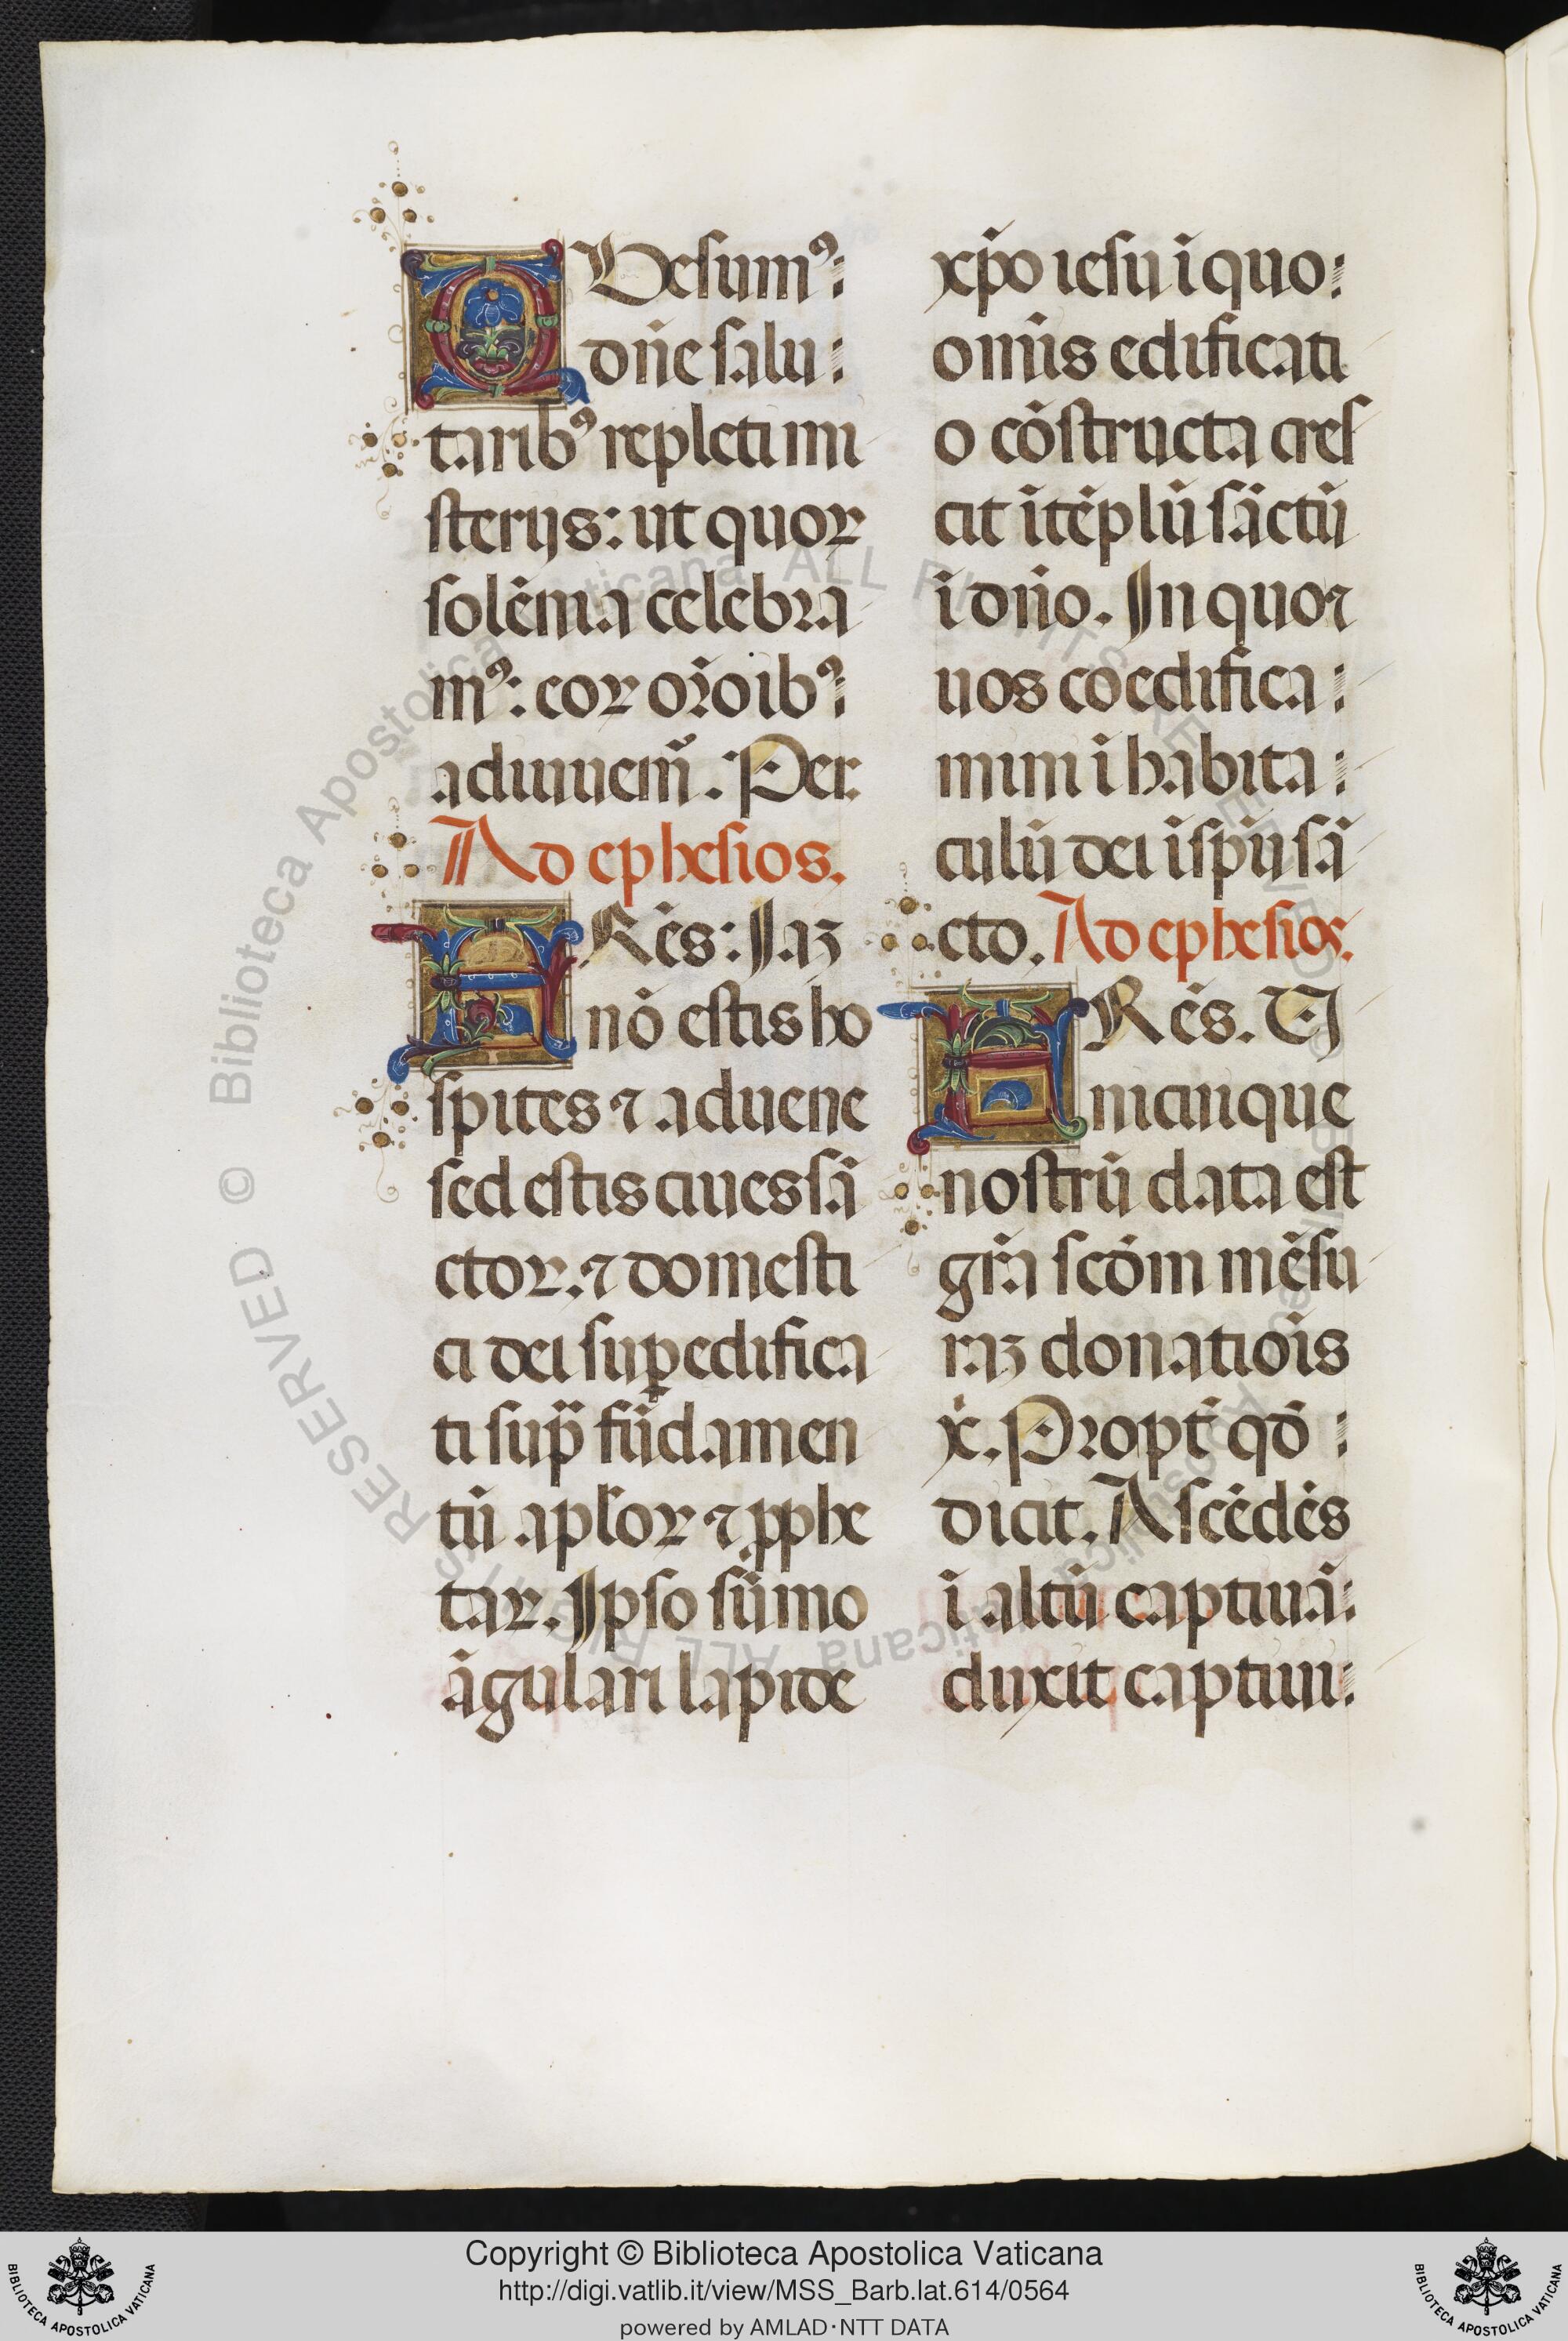 QUesumꝰ:
dn̄e salu:
taribꝰ repleti mi
sterijs: ut quoꝝ
solēnia celebra
mꝰ: eoꝝ or̄oibꝰ:
adiuuem̄. Per.
Ad ephesios.
FRēs: Iaꝫ
nō estis ho
spites ⁊ aduene
sed estis ciues sā
ctoꝝ. ⁊ domesti
ci dei suꝑedifica
ti sup̄ fūdamen
tū apl̄oꝝ ⁊ ꝓphe
taꝝ. Ipso sūmo
āgulari lapide
xp̄o iesu ī quo:
omīs edificati
o cōstructa cres
cit ī tēplū sāctū
ī dn̄o. In quo ⁊
uos coedifica:
mini ī habita:
culū dei ī spū sā
cto. Ad ephesios.
FRēs. U
nicuique
nostrū data est
gr̄a scd̄m mēsu
raꝫ donatiōis
xp̄i. Propt̄ qd̄:
dicit. Ascēdēs
ī altū captiuā:
duxit captiui:
Biblioteca Apostolica Vaticana ALL RIGHTS RESERVED ©
Copyright © Biblioteca Apostolica Vaticana
http://digi.vatlib.it/view/MSS_Barb.lat.614/0564
powered by AMLAD·NTT DATA
BIBLIOTECA APOSTOLICA VATICANA
BIBLIOTECA APOSTOLICA VATICANA